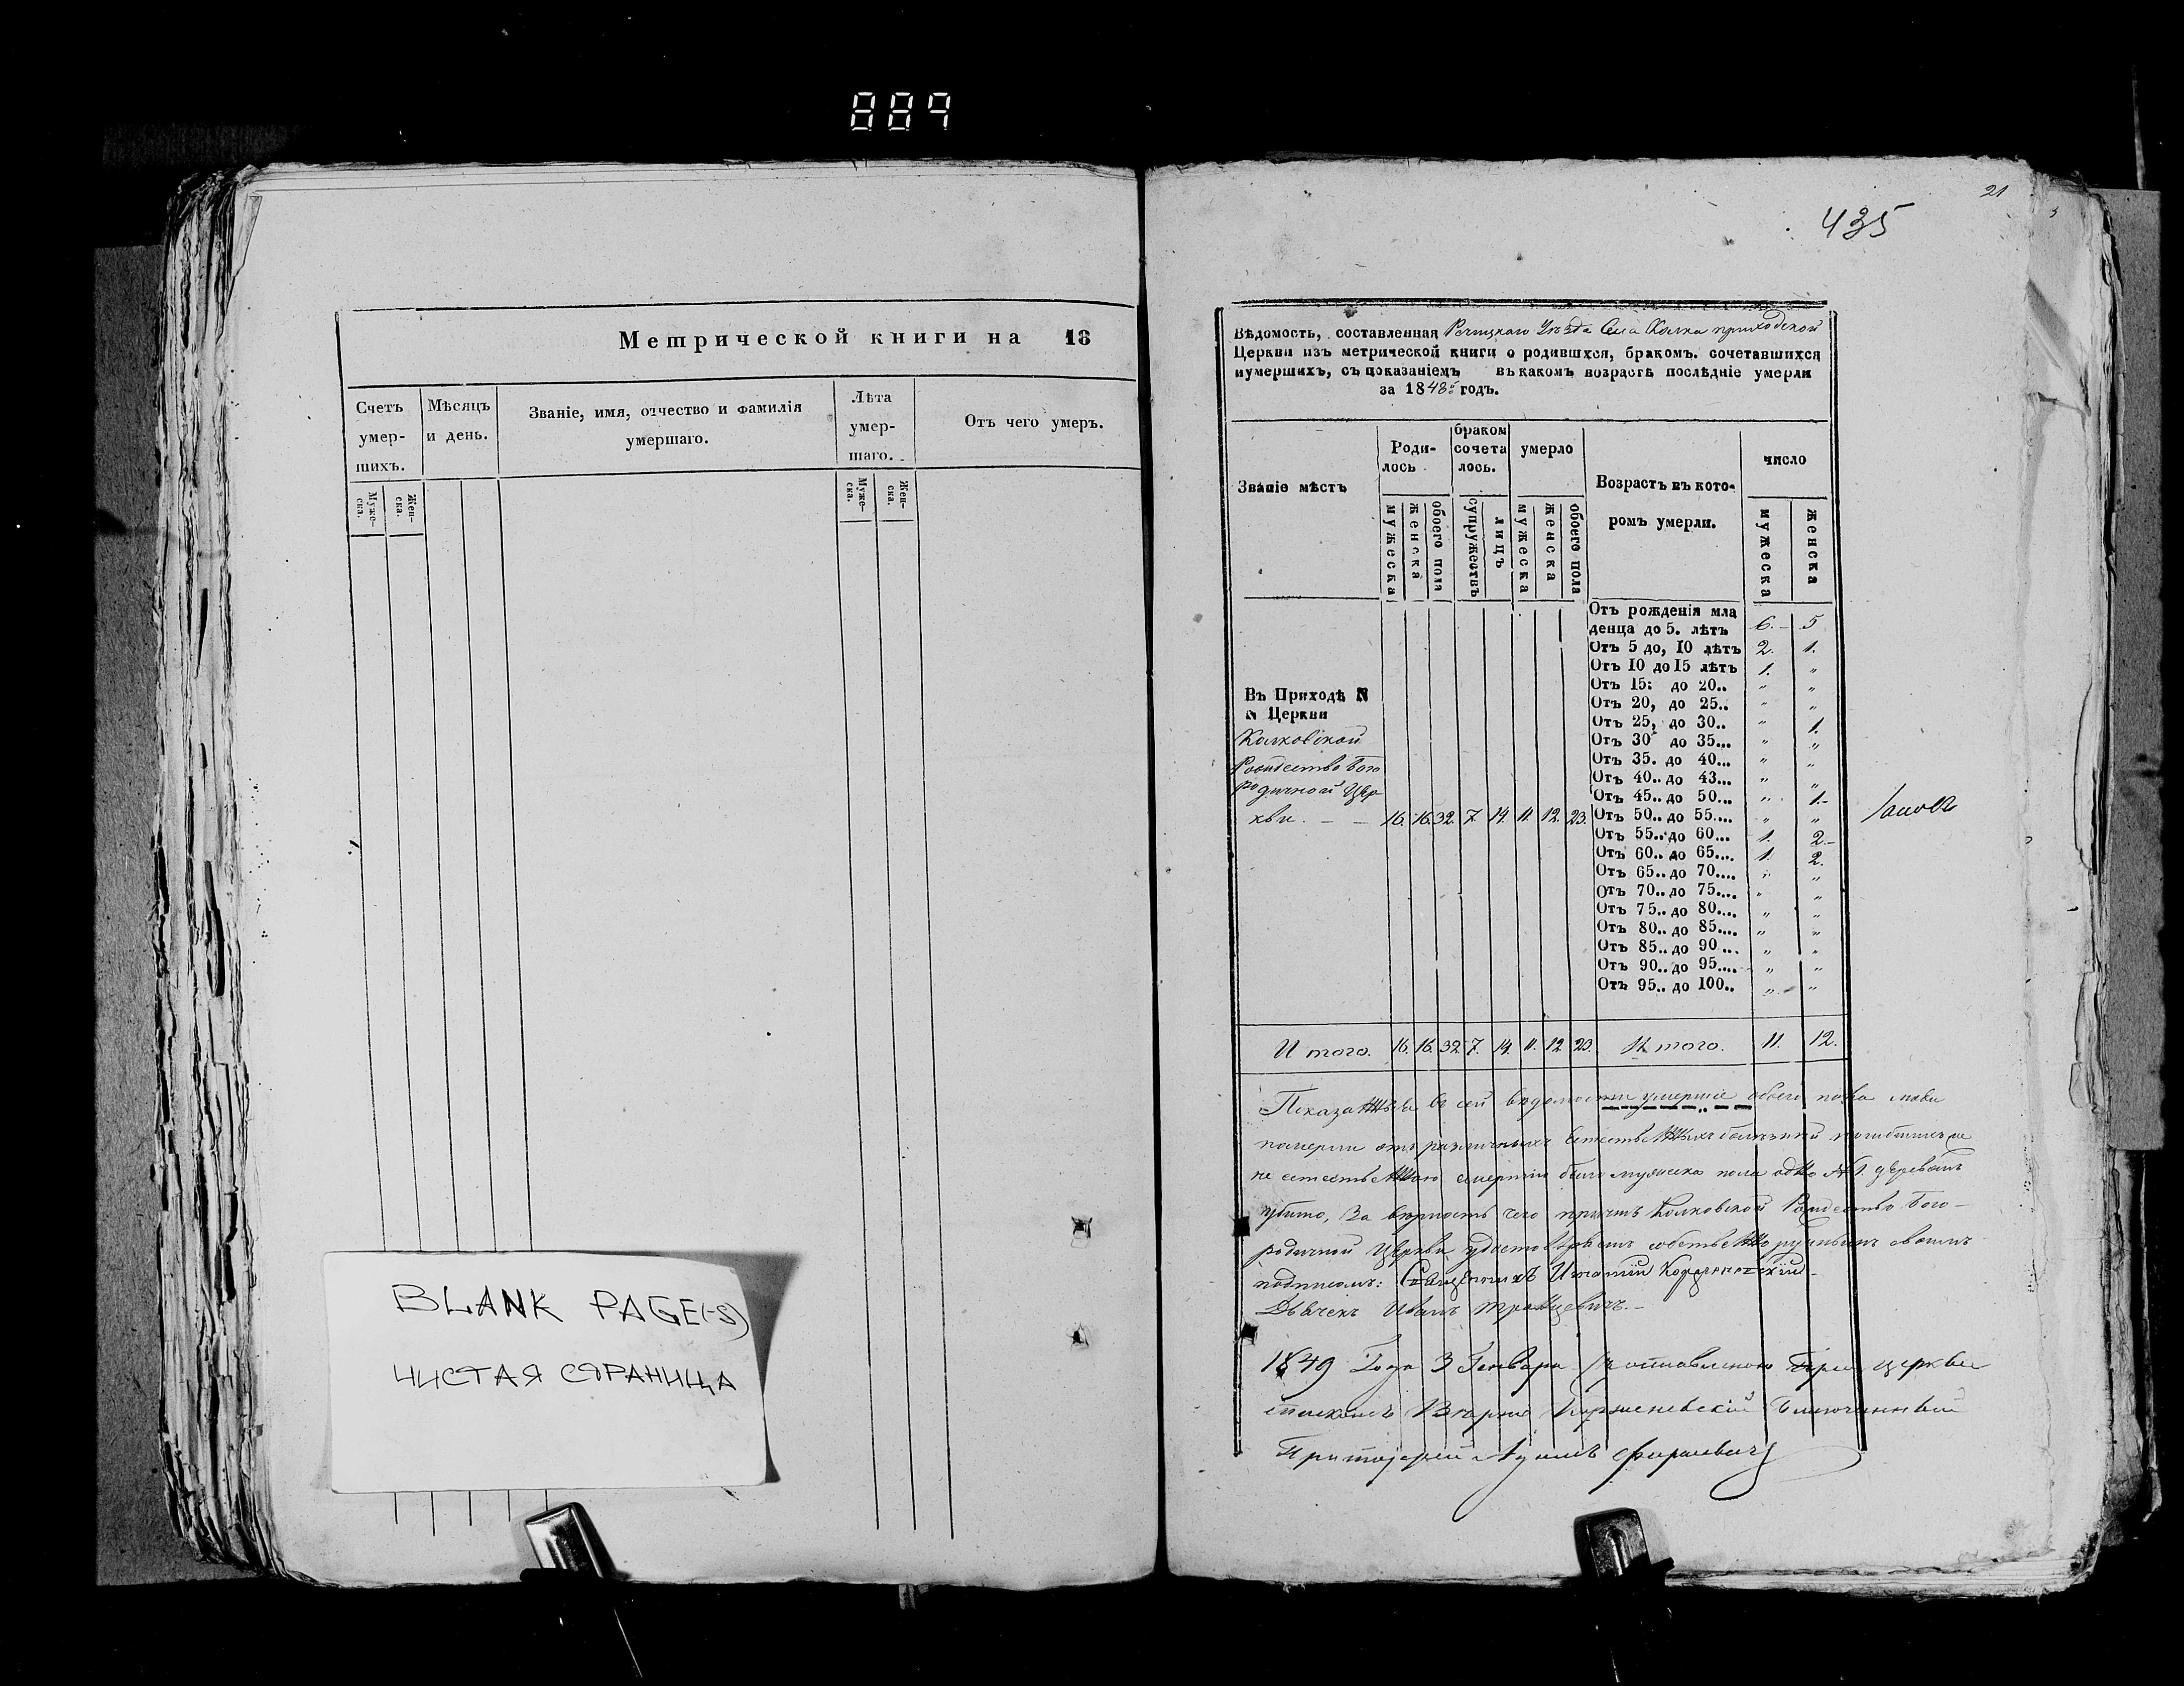 889
Метрической книги на 18
Счетъ умер-шихъ.
Мѣсяцъ и день.
Званіе, имя, отчество и фамилія умершаго.
Лѣта умер-шаго.
Отъ чего умеръ.
Муже-ска.
Жен-ска.
Муже-ска.
Жен-ска.
BLANK PAGE(-S)
ЧИСТАЯ СТРАНИЦА
21
435
Вѣдомость, составленная Речицкаго Уѣзда Села Колка приходской
Церкви изъ метрической книги о родившхся, бракомъ. сочетавшихся
иумершихъ, съ показаніемъ въ какомъ возрастѣ послѣдніе умерли
за 1848й годъ.
Званіе мѣстъ
Роди-лось
браком сочета лось.
умерло
Возрастъ въ кото-ромъ умерли.
число
мужеска
женска
обоего пола
супружествъ
лицъ
мужеска
женска
обоего пола
мужеска
женска
Отъ рожденія мла
денца до 5. лѣтъ 6. 5
Отъ 5 до, 10 лѣтъ 2. 1.
Отъ 10 до 15 лѣтъ 1. "
Отъ 15: до 20.. " "
Отъ 20, до 25.. " "
Отъ 25, до 30.. " 1.
Отъ 30 до 35... " "
Отъ 35. до 40... " "
Отъ 40.. до 43... " "
Отъ 45.. до 50... " 1.
Отъ 50.. до 55.... " "
Отъ 55.. до 60... 1. 2.
Отъ 60.. до 65.... 1. 2.
Отъ 65.. до 70.... " "
Отъ 70.. до 75.... " "
Отъ 75.. до 80.... " "
Отъ 80.. до 85.... " "
Отъ 85.. до 90... " "
Отъ 90.. до 95.... " "
Отъ 95.. до 100.. " "
Въ Приходѣ N
N Церкви
Колковской
Рождество Бого
родичной Цер
кви. — — 16. 16. 32. 7. 14. 11. 12. 23.
Итого. 16. 16. 32. 7. 14. 11. 12. 23. Итого. 11. 12.
Показанныя въ сей вѣдомости умершіе обоего пола
померли отъ различныхъ естественныхъ болѣзней
не естественною смертію было мужеска пола одно №1. деревомъ
убито, За вѣрность чего причтъ Колковской Рождество Бого-
родичной Церкви удостовѣряемъ собственноручнымъ своимъ
подписомъ: Священникъ Игнатій
Дьячекъ Иванъ
1849 Года 3 Генваря при церкви
Благочинный